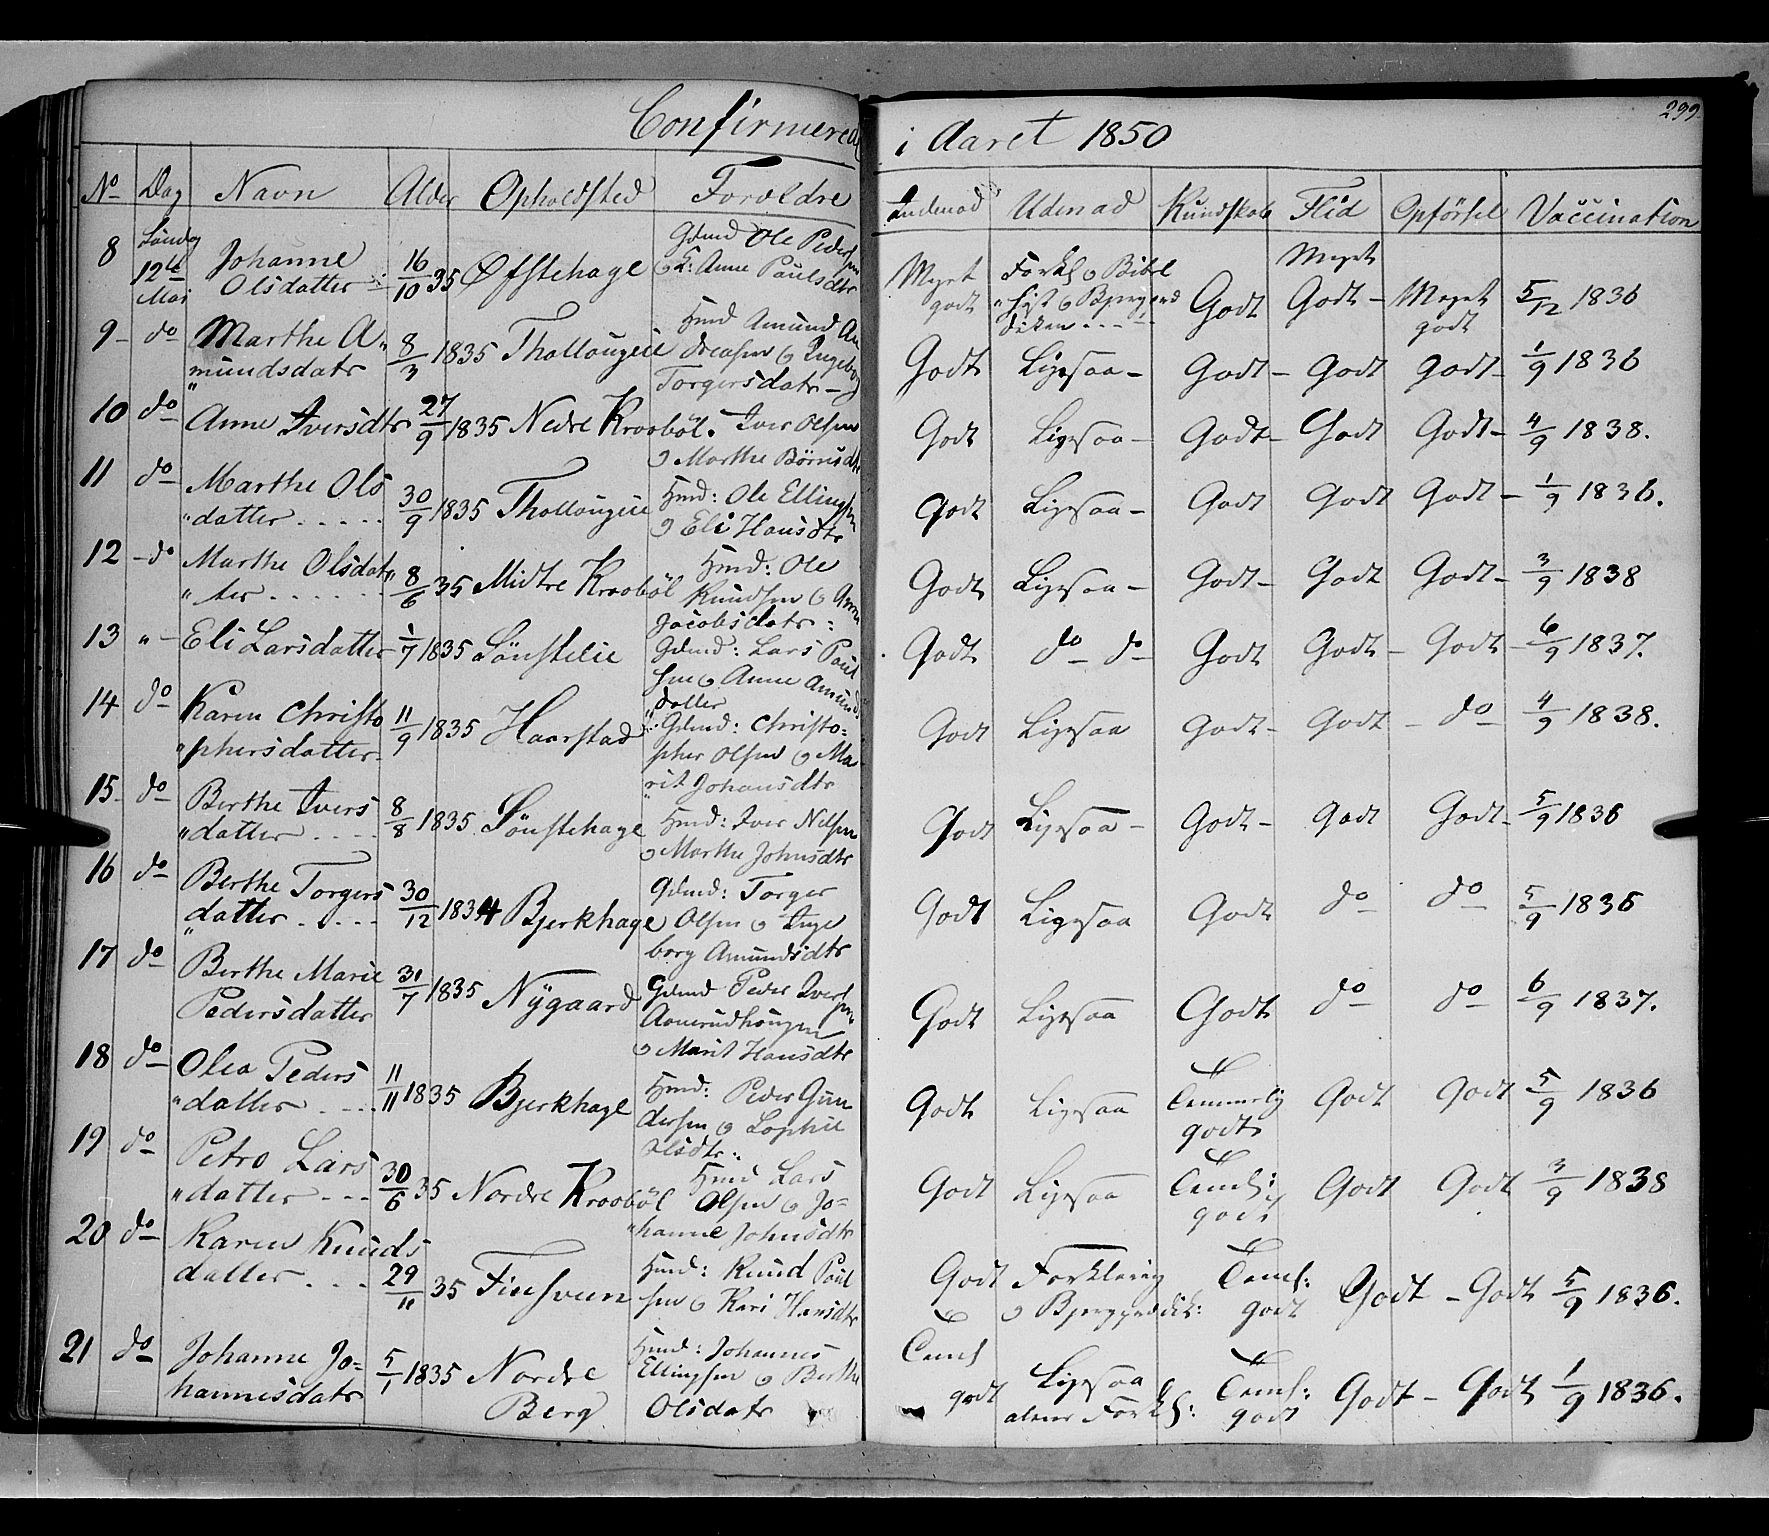 Confirmerede i Aaret 1850
299
No Dag Navn Alder Opholdsted Forældre Indenad Udenad Kundskab Flid Opförsel Vaccination
8 Söndag 12te Mai Johanne Olsdatter 16/10 35 Øfstehage Gdmd Ole Pedersen o K: Anne Paulsdtr Meget godt Forkl o Bibl Hist o Godt Meget Godt – Meget godt 5/12 1836
9 – do Marthe A„ mundsdatr 8/3 1835 Thollougeie Hmd Amund An dreasen o Ingeborg Torgersdatr – Godt Ligesaa – Godt – Godt Godt – 1/9 1836
10 do Anne Iversdtr 27/9 1835 Nedre Krooböl. Iver Olsen o Marthe Börnsdtr Godt Ligesaa – Godt – Godt Godt – 4/9 1838.
11 do Marthe Ols „datter..... 30/9 1835 Thollougeie Hmd: Ole Ellingsen o Eli Hansdtr Godt Ligesaa – Godt Godt Godt – 1/9 1836.
12 – do Marthe Olsdat„ „ter...... 8/6 35 Midtre Krooböl Hmd: Ole Knudsen o Anne Jacobsdatr: Godt Ligesaa – Godt – Godt Godt – 3/9 1838
13 „ – Eli Larsdatter 1/7 1835 Sönstelie Gdmd: Lars Paul sen o Anne Amunds datter Godt do do Godt Godt – Godt – 6/9 1837.
14 do Karen Christo „phersdatter – 11/9 1835 Haarstad Gdmd: Christo= pher Olsen o Ma rit Johansdtr Godt Ligesaa Godt – Godt – do 4/9 1838.
15 – do Berthe Ivers „datter.... 8/8 1835 Sönstehage Hmd: Iver Nilsen o Marthe Johnsdtr Godt Ligesaa – Godt – Godt Godt – 5/9 1836
16 do Berthe Torgers datter..... 30/12 1834 Bjerkhage Gdmd: Torger Olsen o Inge borg Amundsdtr Godt Ligesaa Godt do do 5/9 1836
17 do Berthe Marie Pedersdatter 31/7 1835 Nÿgaard Gdmd Peder Iversen o Marit Hansdtr Godt Ligesaa Godt do do 6/9 1837.
18 do Olea Peders „datter.... 11/11 1835 Bjerkhage Hmd: Peder Gun dersen o Sophie Olsdtr: Godt Ligesaa Temmelig godt Godt Godt 5/9 1836
19 do Petro Lars „datter – – – 30/6 35 Nordre Krooböl Hmd Lars Olsen o Jo= „hanne Johnsdtr Godt Ligesaa Teml: godt Godt Godt 3/9 1838
20 do Karen Knuds datter.... 29/11 35 Hmd: Knud Paul sen o Kari Hansdtr Godt Forklaring o Teml: godt Godt – Godt 5/9 1836.
21 do Johanne Jo= hannesdatr 5/1 1835 Nordre Berg Hmd: Johannes Ellingsen o Berthe Olsdatr Teml godt Ligesaa alene Forkl: Teml: godt Godt – Godt 1/9 1836.